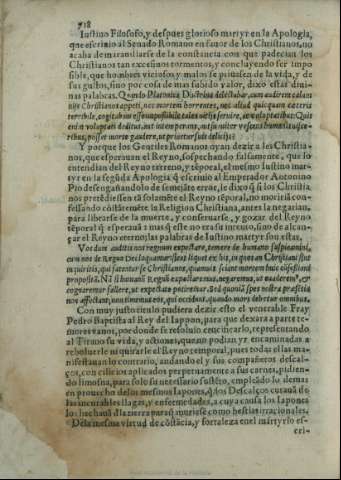 718
Iustino Filosofo, y despues glorioso martyr en la Apologia,
que escriuio al Senado Romano en fauor de los Christianos, no
acaba de marauillarse de la constancia con que padecian los
Christianos tan excessiuos tormentos, y concluyendo ser impo
sible, que hombres viciosos y malos se priuassen de la vida, y de
sus gustos, sino por cosa de mas subido valor, dixo estas diui-
nas palabras. Quando Platonica Doctrina delectabar, cum audirem calum
nijs Christianos appeti, nec mortem horrentes, nec aliud quicquam cæteris
terribile, cogitabam esse impossibile tales vitijs seruire, se voluptatibus: Quis
enim voluptati deditus, aut intemperans,
posse morte gaudere, vt priuetur suis delitijs?
Y porque los Gentiles Romanos oyan dezir a los Christia-
nos, que esperauan el Reyno, sospechando falsamente, que lo
entendian del Reyno terreno, y tēporal, el mesmo Iustino mar-
tyr en la segūda Apologia q̄ escriuio al Emperador Antonino
Pio desengañandolo de semejāte error, le dixo q̄ si los Christia
nos pretēdiessen tā solamēte el Reyno tēporal, no moririā con-
fessando cōstātemēte la Religion Christiana, antes la negarian,
para librarse de la muerte, y conseruarse, y gozar del Reyno
tēporal q̄ esperauā: mas q̄ este no era su intento, sino de alcan-
çar el Reyno eterno; las palabras de Iustino martyr son estas,
Vos dum auditis nos regnum expectare, temere de humano suspicamini,
cum nos de Regno Dei loquamur; idque liquet ex his, in quos an Christiani sint
inquiritis, qui fatentur se Christianos, quamuis sciant mortem huic cōfessioni
propositā. Nā si humani Regnū expectaremus, negaremus, vt euaderem⁹, et
cogeremur fallere, vt expectato potiremur. Sed quoniā spes nostra præsētia
non affectant; non timemus eos, qui occidunt, quando mors debetur omnibus.
Con muy justo titulo pudiera dezir esto el venerable Fray
Pedro Baptista al Rey del Iappon, para que dexara a parte te-
mores vanos, por donde se resoluio crucificarlo, representando
al Tirano su vida, y acciones, que no podian yr encaminadas a
reboluerle ni quitarle el Reyno temporal, pues todas ellas ma-
nifestauan lo contrario, andando el y sus compañeros descal-
ços, con cilicios aplicados perpetuamente a sus carnes, pidien-
do limosna, para solo su necessario sustēto, empleādo lo demas
en prouecho de los mesmos Iapones, q̄ los Descalços curauā de
las incurables llagas, y enfermedades, a cuya causa los Iapones
los hechauā d̄la tierra para q̄ muriessē como bestias irracionales.
Dela mesma virtud de cōstācia, y fortaleza en el martyrio es-
cri-